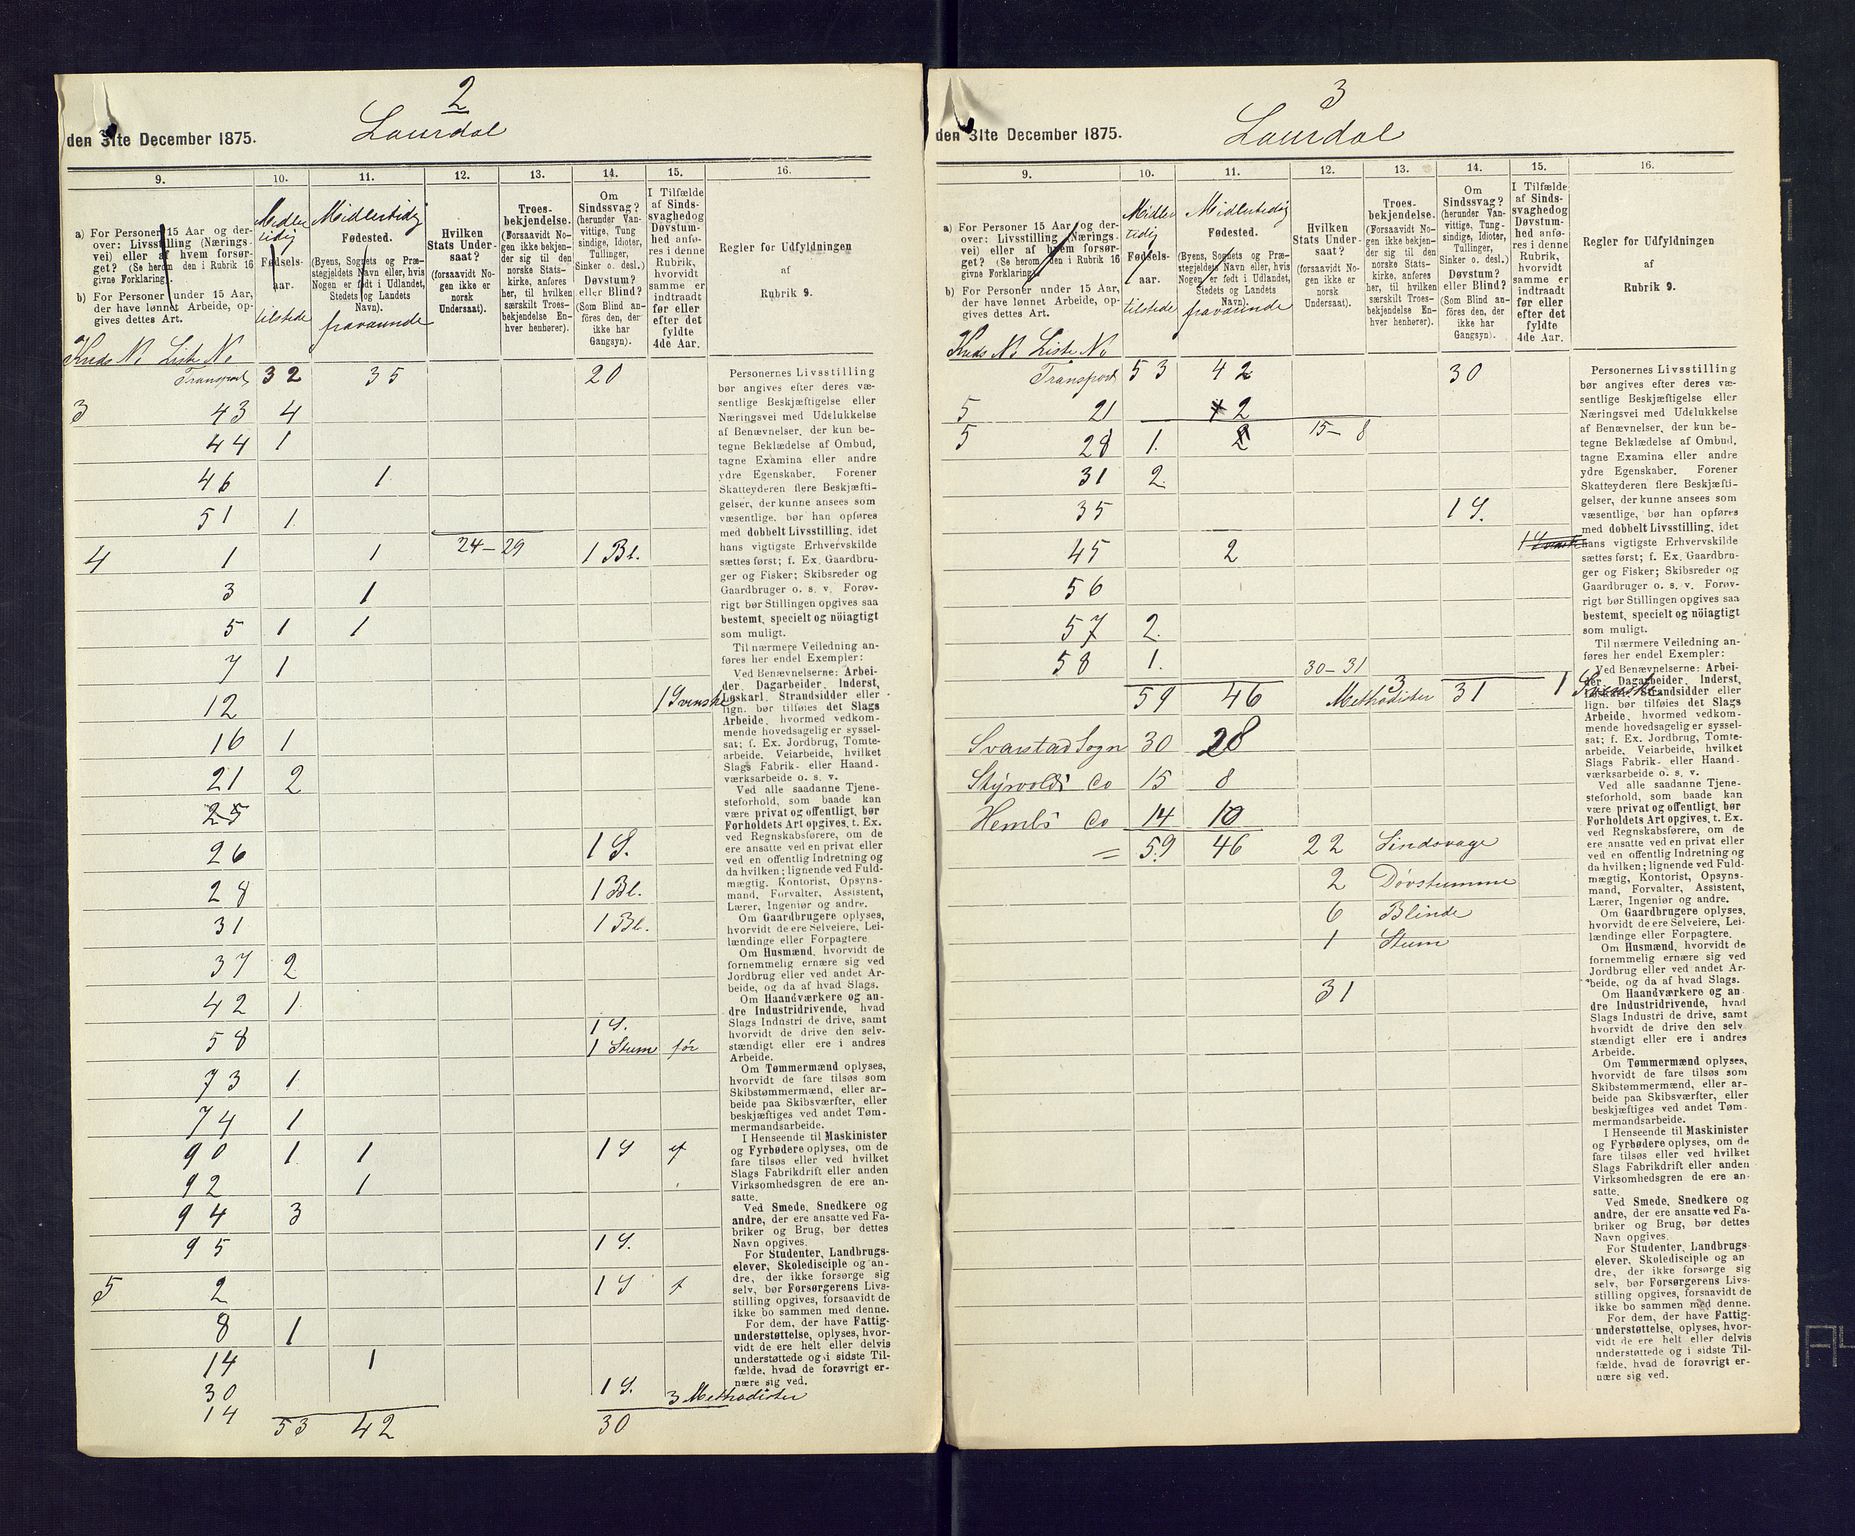 2
den 31te December 1875. Laurdal
9. 10. 11. 12. 13. 14. 15. 16.
a) For Personer 15 Aar og der-
over: Livsstilling (Nærings-
vei) eller af hvem forsør-
get? (Se herom den i Rubrik 16
givne Forklaring).
b) For Personer under 15 Aar,
der have lønnet Arbeide, op-
gives dettes Art.
Midler
tidig
Fødsels-
aar.
tilstede
Midlertidig
Fødested.
(Byens, Sognets og Præ-
stegjeldets Navn eller, hvis
Nogen er født i Udlandet,
Stedets og Landets
Navn).
fraværende
Hvilken
Stats Under-
saat?
(forsaavidt No-
gen ikke er
norsk
Undersaat).
Troes-
bekjendelse.
(Forsaavidt No-
gen ikke bekjen-
der sig til den
norske Stats-
kirke, anføres
her, til hvilken
særskilt Troes-
bekjendelse En-
hver henhører).
Om
Sindssvag?
(herunder Van-
vittige, Tung
sindige, Idioter,
Tullinger,
Sinker o. desl.).
Døvstum?
eller Blind?
(Som Blind an-
føres den, der
ikke har
Gangsyn).
I Tilfælde
af Sinds-
svaghed og
Døvstum-
hed anfø-
res i denne
Rubrik,
hvorvidt
samme er
indtraadt
før eller
efter det
fyldte
4de Aar.
Regler for Udfyldningen
af
Rubrik 9.
Kreds No Liste No
Transport 32 35 20
3 43 4
44 1
46 1
51 1
4 1 1 24-29 1 Bl.
3 1
5 1 1
7 1
12 1 Svenske
16 1
21 2
25
26 1 S.
28 1 Bl.
31 1 Bl.
37 2
42 1
58 1 S.
1 Stum før
73 1
74 1
90 1 1 1 S
92 1
94 3
95 1 S.
5 2 1 S
8 1
14 1
30 1 S. 3 Methodister
14
53 42 30
Personernes Livsstilling
bør angives efter deres væ-
sentlige Beskjæftigelse eller
Næringsvei med Udelukkelse
af Benævnelser, der kun be-
tegne Beklædelse af Ombud,
tagne Examina eller andre
ydre Egenskaber. Forener
Skatteyderen flere Beskjæfti-
gelser, der kunne ansees som
væsentlige, bør han opføres
med dobbelt Livsstilling, idet
hans vigtigste Erhvervskilde
sættes først; f. Ex. Gaardbru-
ger og Fisker; Skibsreder og
Gaardbruger o. s. v. Forøv-
rigt bør Stillingen opgives saa
bestemt, specielt og nöiagtigt
som muligt.
Til nærmere Veiledning an-
føres her endel Exempler:
Ved Benævnelserne: Arbei-
der, Dagarbeider, Inderst,
Løskarl, Strandsidder eller
lign. bør tilføies det Slags
Arbeide, hvormed vedkom-
mende hovedsagelig er syssel-
sat; f. Ex. Jordbrug, Tomte-
arbeide, Veiarbeide, hvilket
Slags Fabrik- eller Haand-
værksarbeide o. s. v.
Ved alle saadanne Tjene-
steforhold, som baade kan
være privat og offentligt, bør
Forholdets Art opgives, t. Ex.
ved Regnskabsførere, om de
ere ansatte ved en privat eller
ved en offentlig Indretning og
da hvilken; lignende ved Fuld-
mægtig, Kontorist, Opsyns-
mand, Forvalter, Assistent,
Lærer, Ingeniør og andre.
Om Gaardbrugere oplyses,
hvorvidt de ere Selveiere, Lei-
lændinge eller Forpagtere
Om Husmænd, hvorvidt de
fornemmelig ernære sig ved
Jordbrug eller ved andet Ar-
beide, og da af hvad Slags.
Om Haandværkere og an-
dre Industridrivende, hvad
Slags Industri de drive, samt
hvorvidt de drive den selv-
stændigt eller ere i andres
Arbeide.
Om Tømmermænd oplyses,
hvorvidt de fare tilsøs som
Skibstømmermænd, eller ar-
beide paa Skibsværfter, eller
beskjæftiges ved andet Tøm-
mermandsarbeide.
I Henseende til Maskinister
og Fyrbødere oplyses, om de
fare tilsøs eller ved hvilket
Slags Fabrikdrift eller anden
Virksomhedsgren de ere an-
satte.
Ved Smede, Snedkere og
andre, der ere ansatte ved Fa-
briker og Brug, bør dettes
Navn opgives.
For Studenter, Landbrugs-
elever, Skoledisciple og an-
dre, der ikke forsørge sig
selv, bør Forsørgerens Livs-
stilling opgives, forsaavidt de
ikke bo sammen med denne.
For dem, der have Fattig-
understøttelse, oplyses, hvor-
vidt de ere helt eller delvis
understøttede og i sidste Til-
fælde, hvad de forøvrigt er-
nære sig ved.
3
den 31te December 1875. Laurdal
9. 10. 11. 12. 13. 14. 15. 16.
a) For Personer 15 Aar og der-
over: Livsstilling (Nærings-
vei) eller af hvem forsør-
get? (Se herom den i Rubrik 16
givne Forklaring).
b) For Personer under 15 Aar,
der have lønnet Arbeide, op-
gives dettes Art.
Midler
tidig
Fødsels-
aar.
tilstede
Midlertidig
Fødested.
(Byens, Sognets og Præ-
stegjeldets Navn eller, hvis
Nogen er født i Udlandet,
Stedets og Landets
Navn).
fraværende
Hvilken
Stats Under-
saat?
(forsaavidt No-
gen ikke er
norsk
Undersaat).
Troes-
bekjendelse.
(Forsaavidt No-
gen ikke bekjen-
der sig til den
norske Stats-
kirke, anføres
her, til hvilken
særskilt Troes-
bekjendelse En-
hver henhører).
Om
Sindssvag?
(herunder Van-
vittige, Tung-
sindige, Idioter,
Tullinger,
Sinker o. desl.).
Døvstum?
eller Blind?
(Som Blind an-
føres den, der
ikke har
Gangsyn).
I Tilfælde
af Sinds-
svaghed og
Døvstum-
hed anfø-
res i denne
Rubrik,
hvorvidt
samme er
indtraadt
før eller
efter det
fyldte
4de Aar.
Regler for Udfyldningen
af
Rubrik 9.
Kreds No Liste No
Transport 53 42 30
5 21 2
5 28 1. 2 15-8
31 2.
35 1 S.
45 2 1 Svensk
56
57 2.
58 1. 30-31
59 46 3 Methodister 31 1 Svenske
Svarstad Sogn 30 28
Styrvolds Do 15 8
Hembs Do 14 10
= 59 46 22 Sindsvage
2 Døvstumme
6 Blinde
1 Stum
31
Personernes Livsstilling
bør angives efter deres væ-
sentlige Beskjæftigelse eller
Næringsvei med Udelukkelse
af Benævnelser, der kun be-
tegne Beklædelse af Ombud,
tagne Examina eller andre
ydre Egenskaber. Forener
Skatteyderen flere Beskjæfti-
gelser, der kunne ansees som
væsentlige, bør han opføres
med dobbelt Livsstilling, idet
hans vigtigste Erhvervskilde
sættes først; f. Ex. Gaardbru-
ger og Fisker; Skibsreder og
Gaardbruger o. s. v. Forøv-
rigt bør Stillingen opgives saa
bestemt, specielt og nöiagtigt
som muligt.
Til nærmere Veiledning an-
føres her endel Exempler:
Ved Benævnelserne: Arbei-
der, Dagarbeider, Inderst,
Løskarl, Strandsidder eller
lign. bør tilføies det Slags
Arbeide, hvormed vedkom-
mende hovedsagelig er syssel-
sat; f. Ex. Jordbrug, Tomte-
arbeide, Veiarbeide, hvilket
Slags Fabrik- eller Haand-
værksarbeide o. s. v.
Ved alle saadanne Tjene-
steforhold, som baade kan
være privat og offentligt, bør
Forholdets Art opgives, t. Ex.
ved Regnskabsførere, om de
ere ansatte ved en privat eller
ved en offentlig Indretning og
da hvilken; lignende ved Fuld-
mægtig, Kontorist, Opsyns-
mand, Forvalter, Assistent,
Lærer, Ingeniør og andre.
Om Gaardbrugere oplyses,
hvorvidt de ere Selveiere, Lei-
lændinge eller Forpagtere
Om Husmænd, hvorvidt de
fornemmelig ernære sig ved
Jordbrug eller ved andet Ar-
beide, og da af hvad Slags.
Om Haandværkere og an-
dre Industridrivende, hvad
Slags Industri de drive, samt
hvorvidt de drive den selv-
stændigt eller ere i andres
Arbeide.
Om Tømmermænd oplyses,
hvorvidt de fare tilsøs som
Skibstømmermænd, eller ar-
beide paa Skibsværfter, eller
beskjæftiges ved andet Tøm-
mermandsarbeide.
I Henseende til Maskinister
og Fyrbødere oplyses, om de
fare tilsøs eller ved hvilket
Slags Fabrikdrift eller anden
Virksomhedsgren de ere an-
satte.
Ved Smede, Snedkere og
andre, der ere ansatte ved Fa-
briker og Brug, bør dettes
Navn opgives.
For Studenter, Landbrugs-
elever, Skoledisciple og an-
dre, der ikke forsørge sig
selv, bør Forsørgerens Livs-
stilling opgives, forsaavidt de
ikke bo sammen med denne.
For dem, der have Fattig-
understøttelse, oplyses, hvor-
vidt de ere helt eller delvis
understøttede og i sidste Til-
fælde, hvad de forøvrigt er-
nære sig ved.